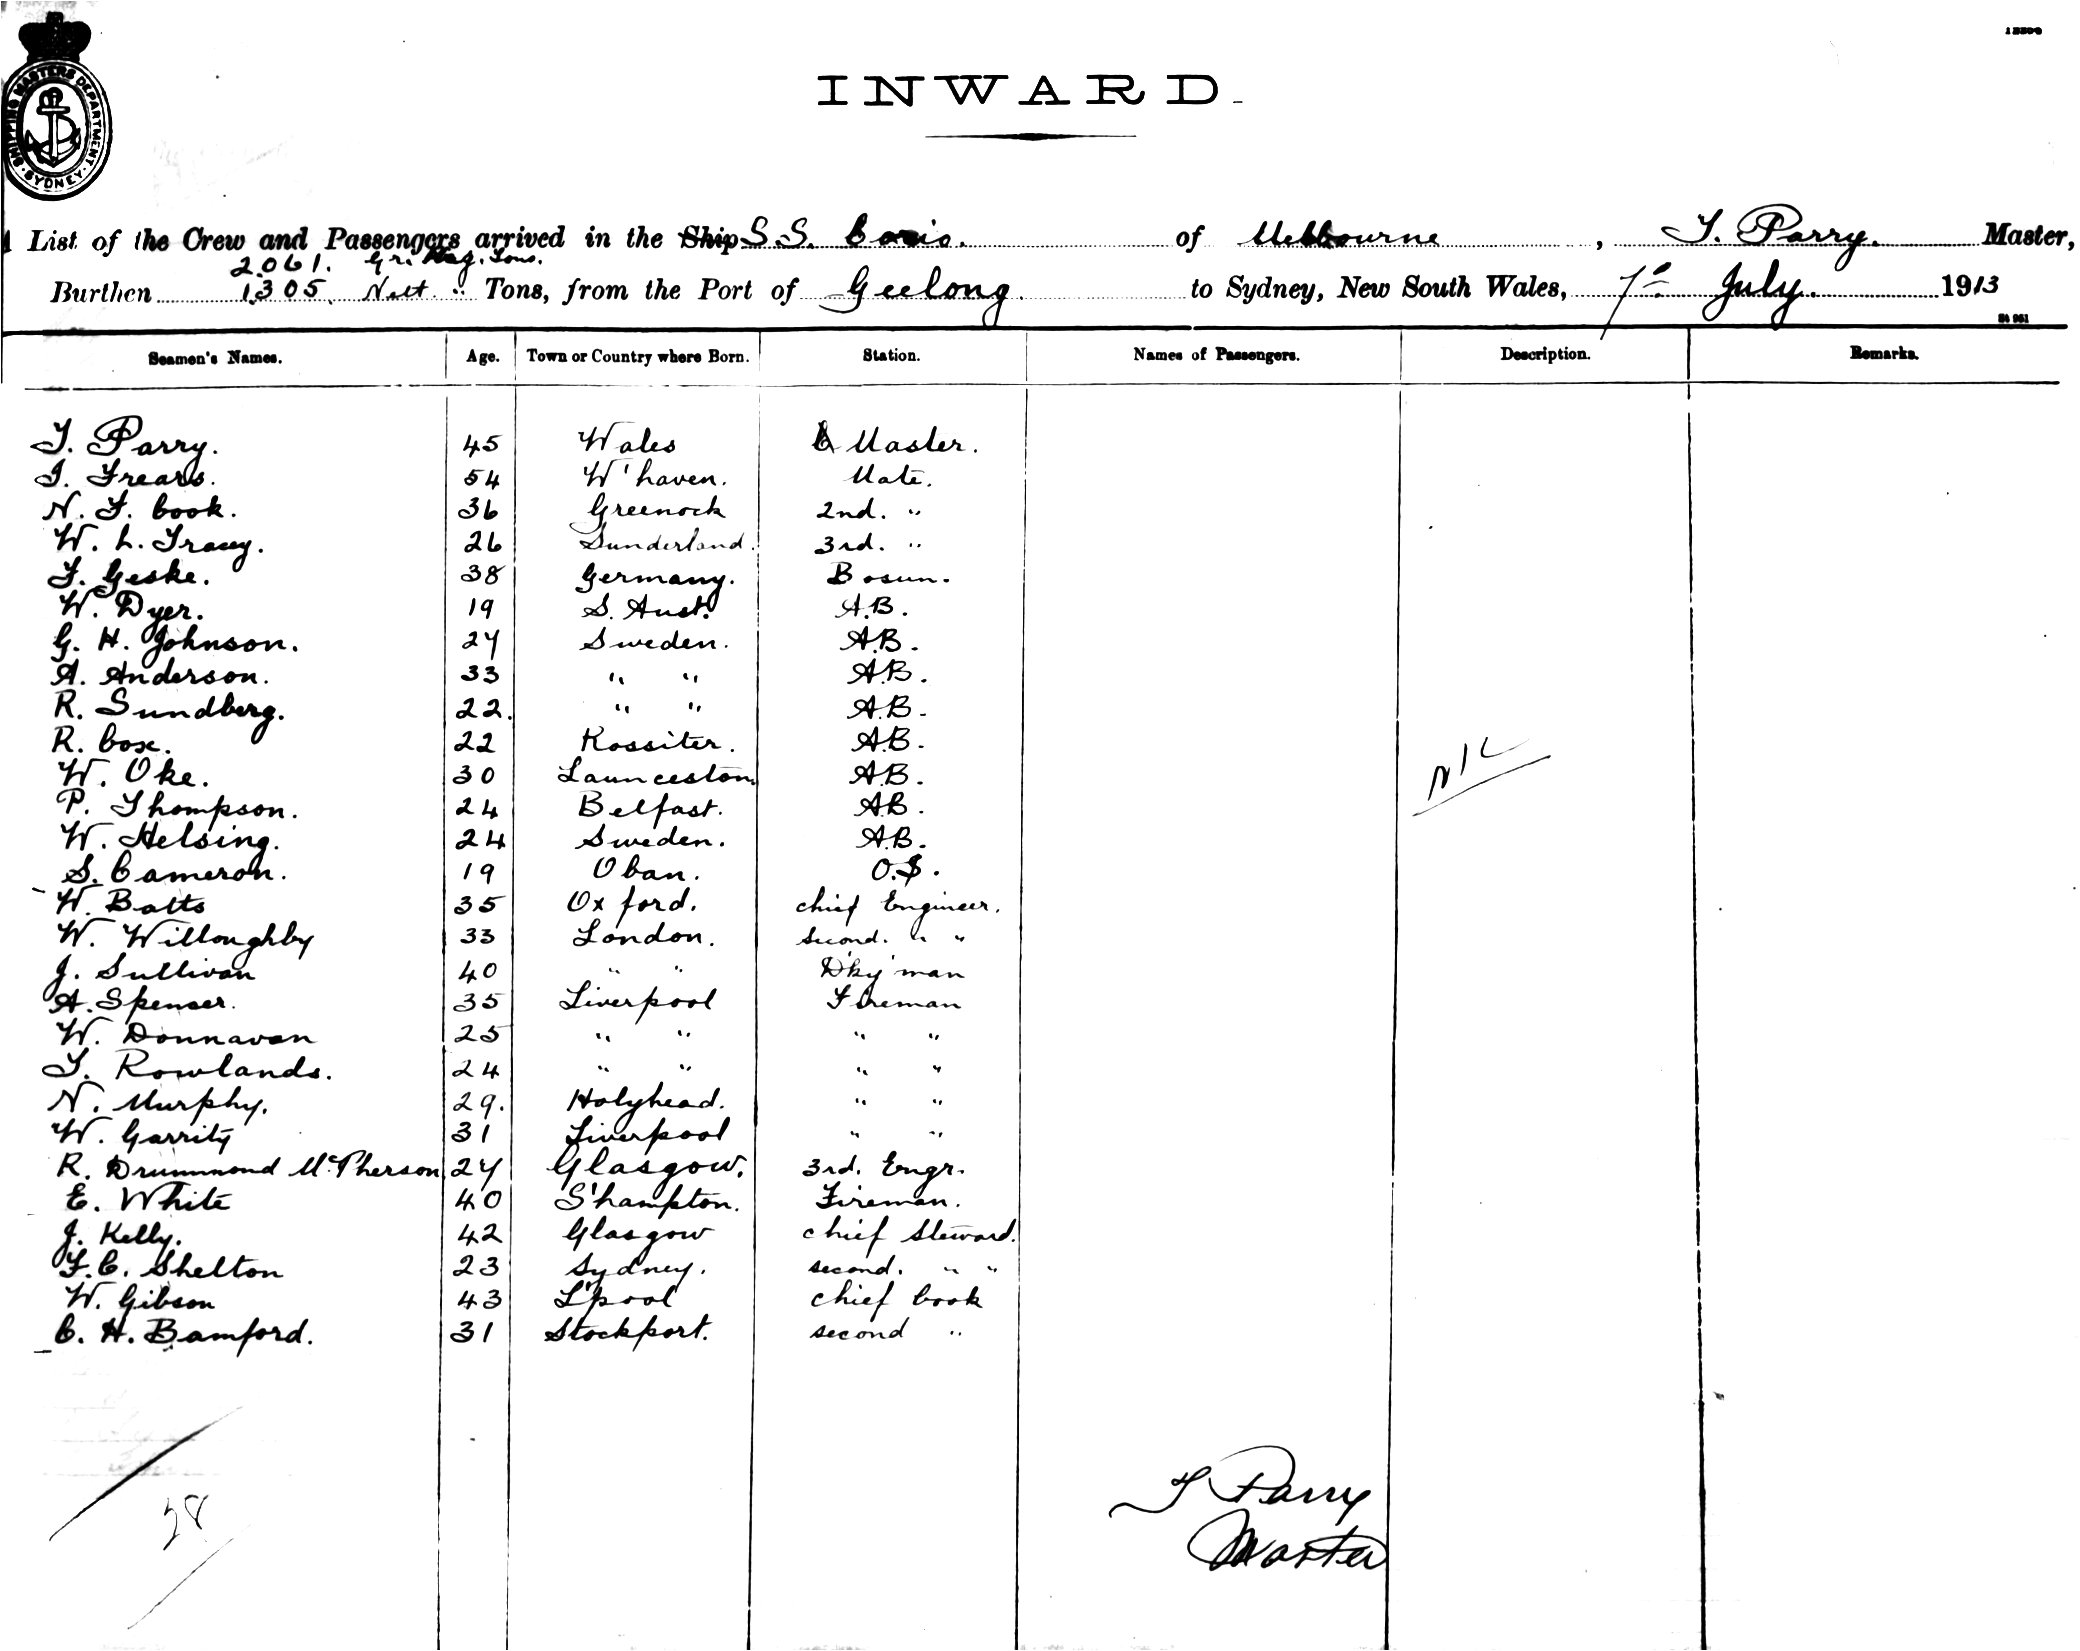 SHIPPING MASTERS DEPARTMENT · SYDNEY ·
INWARD
List of the Crew and Passengers arrived in the Ship S.S. Corio. of Melbourne, T. Parry. Master,
2061. Gr. Reg. Tons.
Burthen 1305. Nett " Tons, from the Port of Geelong. to Sydney, New South Wales, 7th July. 1913
Seamen's Names. Age. Town or Country where Born. Station. Names of Passengers. Description. Remarks.
T. Parry. 45 Wales Master.
J. Frears. 54 W'haven. Mate.
N. F. Cook. 36 Greenock 2nd. "
W. L. Tracey. 26 Sunderland. 3rd. "
F. Geske. 38 Germany. Bosun.
W. Dyer. 19 S. Aust. A.B.
G. H. Johnson. 27 Sweden. A.B.
A. Anderson. 33 " " A.B.
R. Sundberg. 22. " " A.B.
R. Cox. 22 Rossiter. A.B.
W. Oke. 30 Launceston. A.B.
P. Thompson. 24 Belfast. A.B.
W. Helsing. 24 Sweden. A.B.
S. Cameron. 19 Oban. O.S.
W. Batts 35 Oxford. chief Engineer.
W. Willoughby 33 London. second. " "
J. Sullivan 40 " " D'ky'man
A. Spenser. 35 Liverpool Fireman
W. Donnavan 25 " " " "
T. Rowlands. 24 " " " "
N. Murphy. 29. Holyhead. " "
W. Garrity 31 Liverpool " "
R. Drummond McPherson 27 Glasgow. 3rd. Engr.
E. White 40 S'hampton. Fireman.
J. Kelly. 42 Glasgow chief Steward.
F. C. Shelton 23 Sydney. second. " "
W. Gibson 43 L'pool chief Cook
C. H. Bamford. 31 Stockport. second "
NIL
28
T Parry
Master